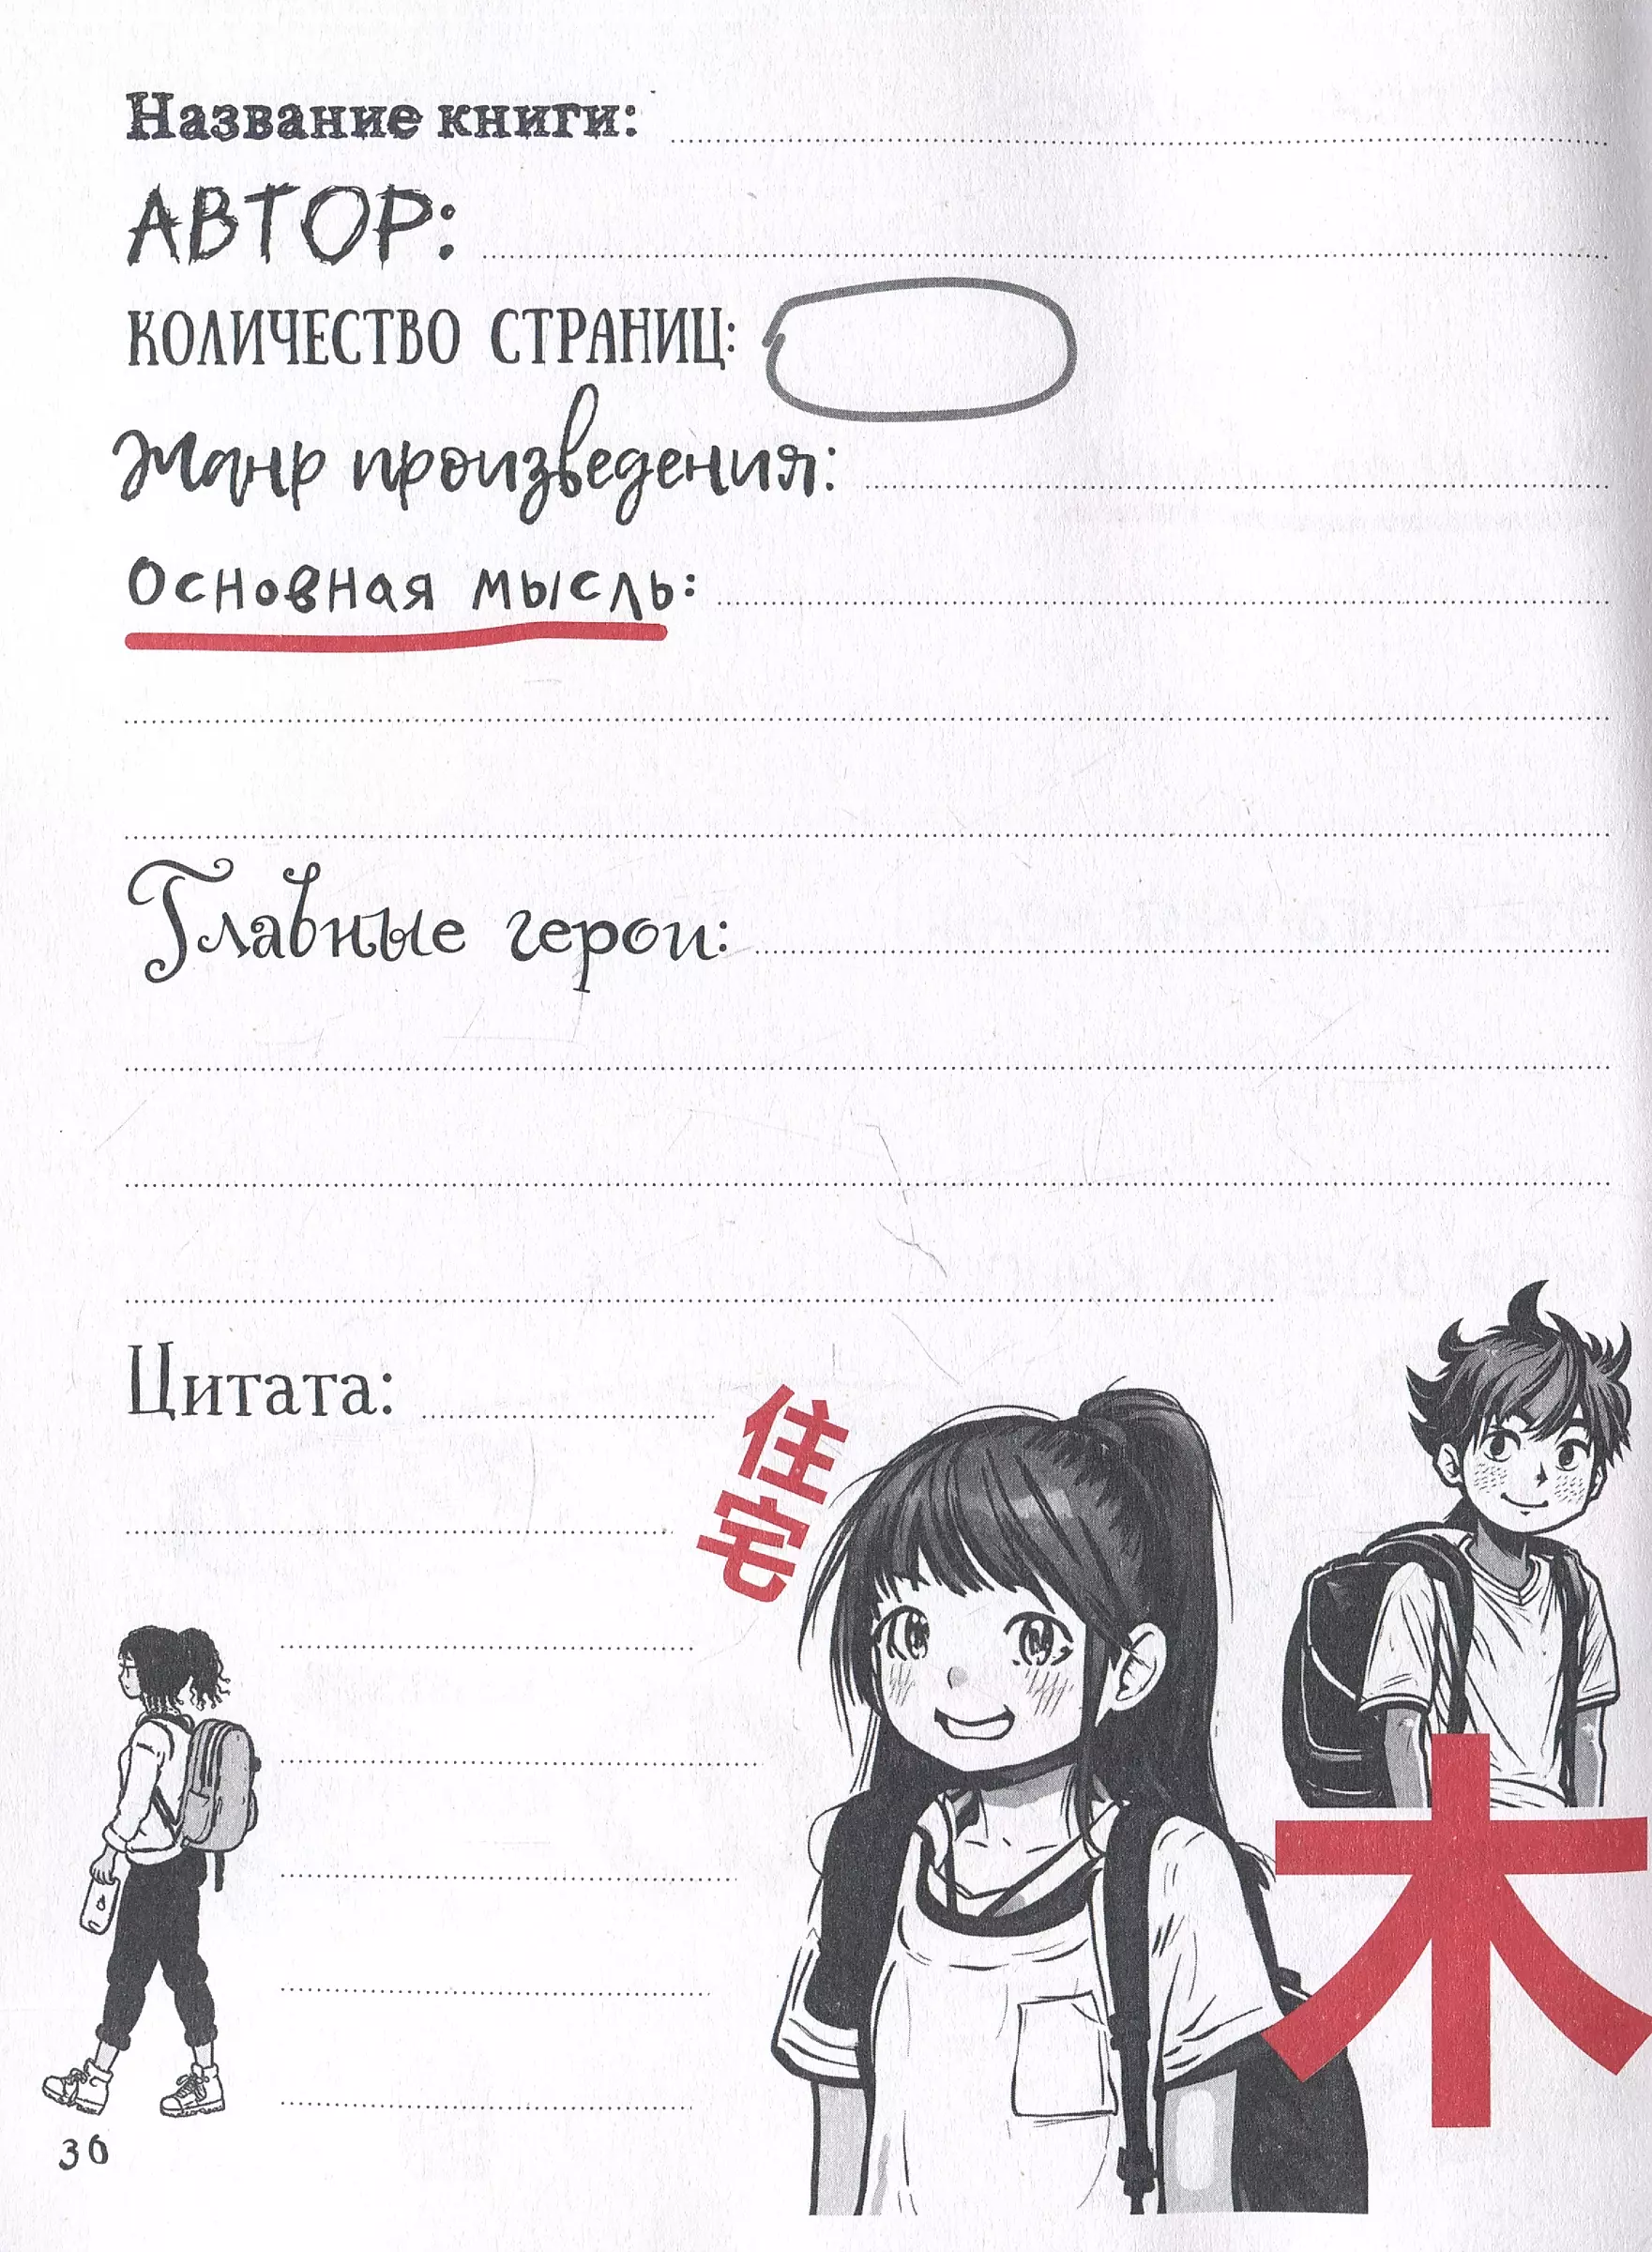 Название книги:
АВТОР:
КОЛИЧЕСТВО СТРАНИЦ:
Жанр произведения:
Основная мысль:
Главные герои:
Цитата:
住宅
木
36